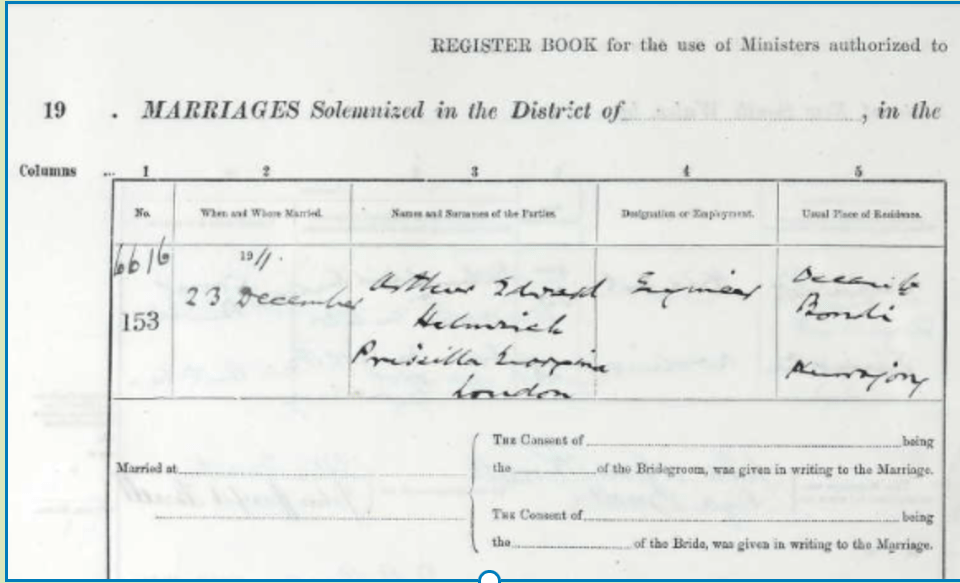 REGISTER BOOK for the use of Ministers authorized to
19 . MARRIAGES Solemnized in the District of , in the
Columns ... 1 2 3 4 5
No. When and Where Married. Names and Surnames of the Parties. Designation or Employment. Usual Place of Residence.
6616
1911.
23 December
153
Arthur Edward
Helmrich
Priscilla
London
Engineer
Bondi
Kurrajong
THE Consent of being
Married at the of the Bridegroom, was given in writing to the Marriage.
THE Consent of being
the of the Bride, was given in writing to the Marriage.